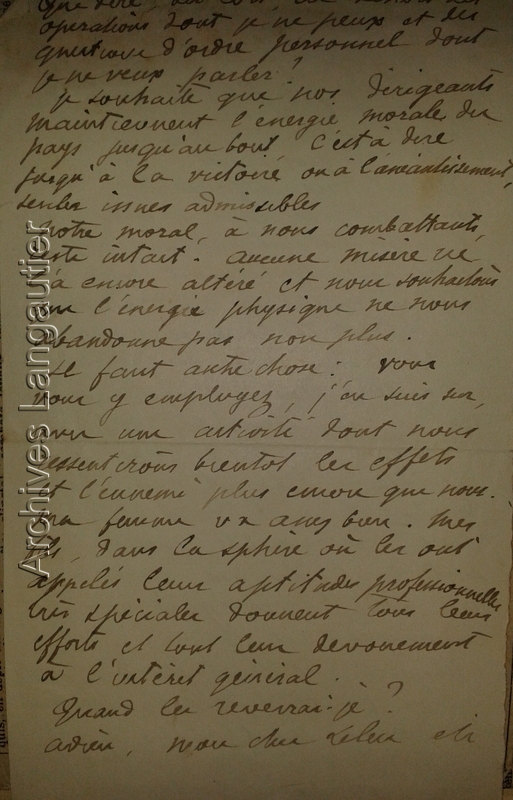 opérations dont je ne peux et des
questions d'ordre personnel dont
je ne veux parler ?
je souhaite que nos dirigeants
maintiennent l'énergie morale du
pays jusqu'au bout c'est à dire
jusqu'à la victoire ou à l'anéantissement,
seules issues admissibles
Notre moral, à nous combattants,
este intact. aucune misère ne
a encore altéré et nous souhaitons
que l'énergie physique ne nous
abandonne pas non plus.
il faut autre chose : vous
vous y employez, j'en suis sur,
avec une activité dont nous
ressentirons bientot les effets
et l'ennemi plus encore que nous.
ma femme va assez bien. Mes
fils, dans la sphère où les ont
appelés leurs aptitudes professionnelles
très spéciales donnent tous leurs
efforts et tout leur dévouement
à l'intéret général.
Quand les reverrai-je ?
adieu, mon cher
Archives Langautier